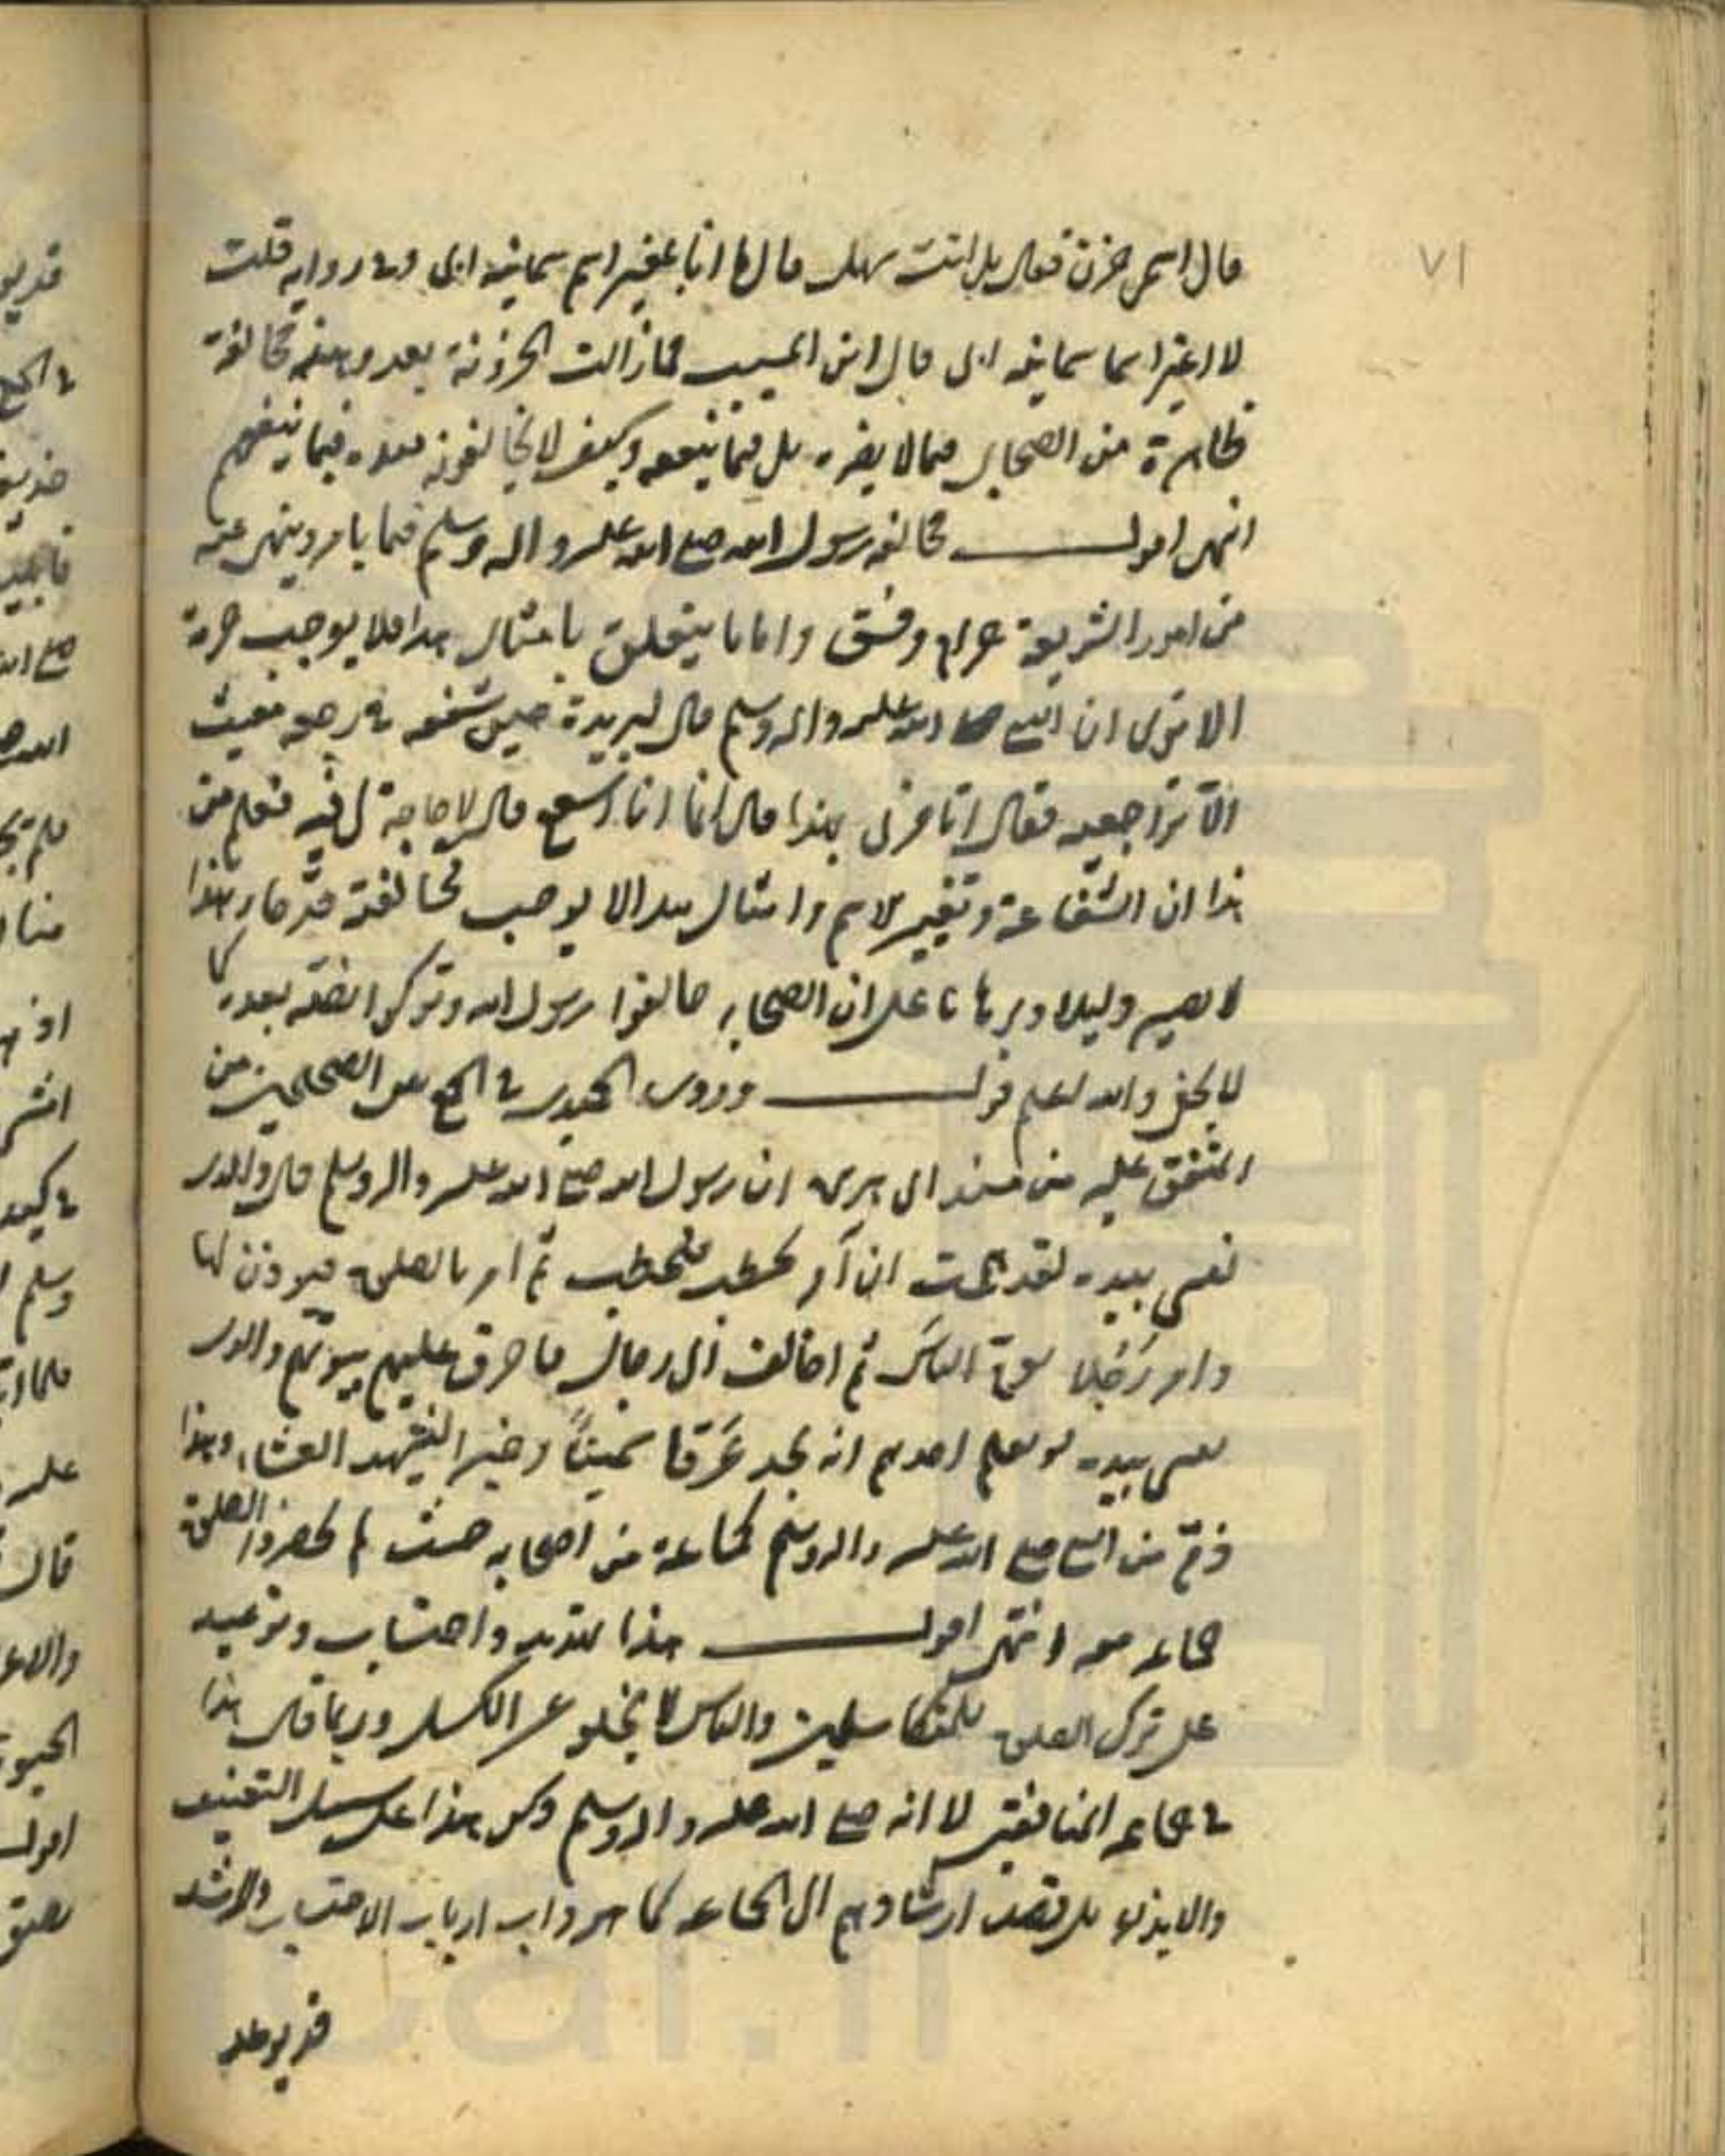 ٧١
قال اسمي حزن فقال بل انت سهل قال ما انا بمغير اسم سمانيه ابي وفي رواية قلت
لا اغير اسما سمانيه ابي قال ابن المسيب فما زالت الحزونة بعد وهذه مخالفة
ظاهرة من الصحابي فيما لا يضره بل فيما ينفعه وكيف لا يخالفونه بعده فيما ينفعهم
انتهى اقول مخالفة رسول الله صلى الله عليه واله وسلم فيما يامر وينهى عنه
من امور الشريعة حرام وفسق واما ما يتعلق بامثال هذا فلا يوجب حرمة
الا ترى ان النبي صلى الله عليه واله وسلم قال لبريدة حين شفعه في رجعة مغيث
الا تراجعيه فقال اتامرني بهذا قال انما انا اشفع قال لا حاجة لي فيه فعلم من
هذا ان الشفاعة وتغير الاسم وامثال هذا لا يوجب مخالفته قد صار هذا
لا يصير دليلا وبرهانا على ان الصحابة خالفوا رسول الله وتركوا نصه بعده كما
لا يخفى والله اعلم قوله وروى الحميدي في الجمع بين الصحيحين من
المتفق عليه من مسند ابي هريرة ان رسول الله صلى الله عليه واله وسلم قال والذي
نفسي بيده لقد هممت ان آمر بحطب فيحطب ثم امر بالصلوة فيوذن لها
وامر رَجُلا يؤم الناس ثم اخالف الى رجال فاحرق عليهم بيوتهم والذي
نفسي بيده لو يعلم احدهم انه يجد عَرقا سميناً وخير الشهد العشاء وهذا
ذمّ من النبي صلى الله عليه واله وسلم لجماعة من اصحابه حيث لم يحضروا الصلوة
جماعة معه انتهى اقول هذا تهديد واحتساب وتوعيد
على ترك الصلوة للمتكاسلين والناس لا يخلو عن الكسل وربما قال هذا
في جماعة المنافقين لا انه صلى الله عليه واله وسلم ذكر هذا على سبيل التعنيف
والايذاء بل قصد ارشادهم الى الجماعة كما هو داب ارباب الاحتساب والارشاد
قد يوعد